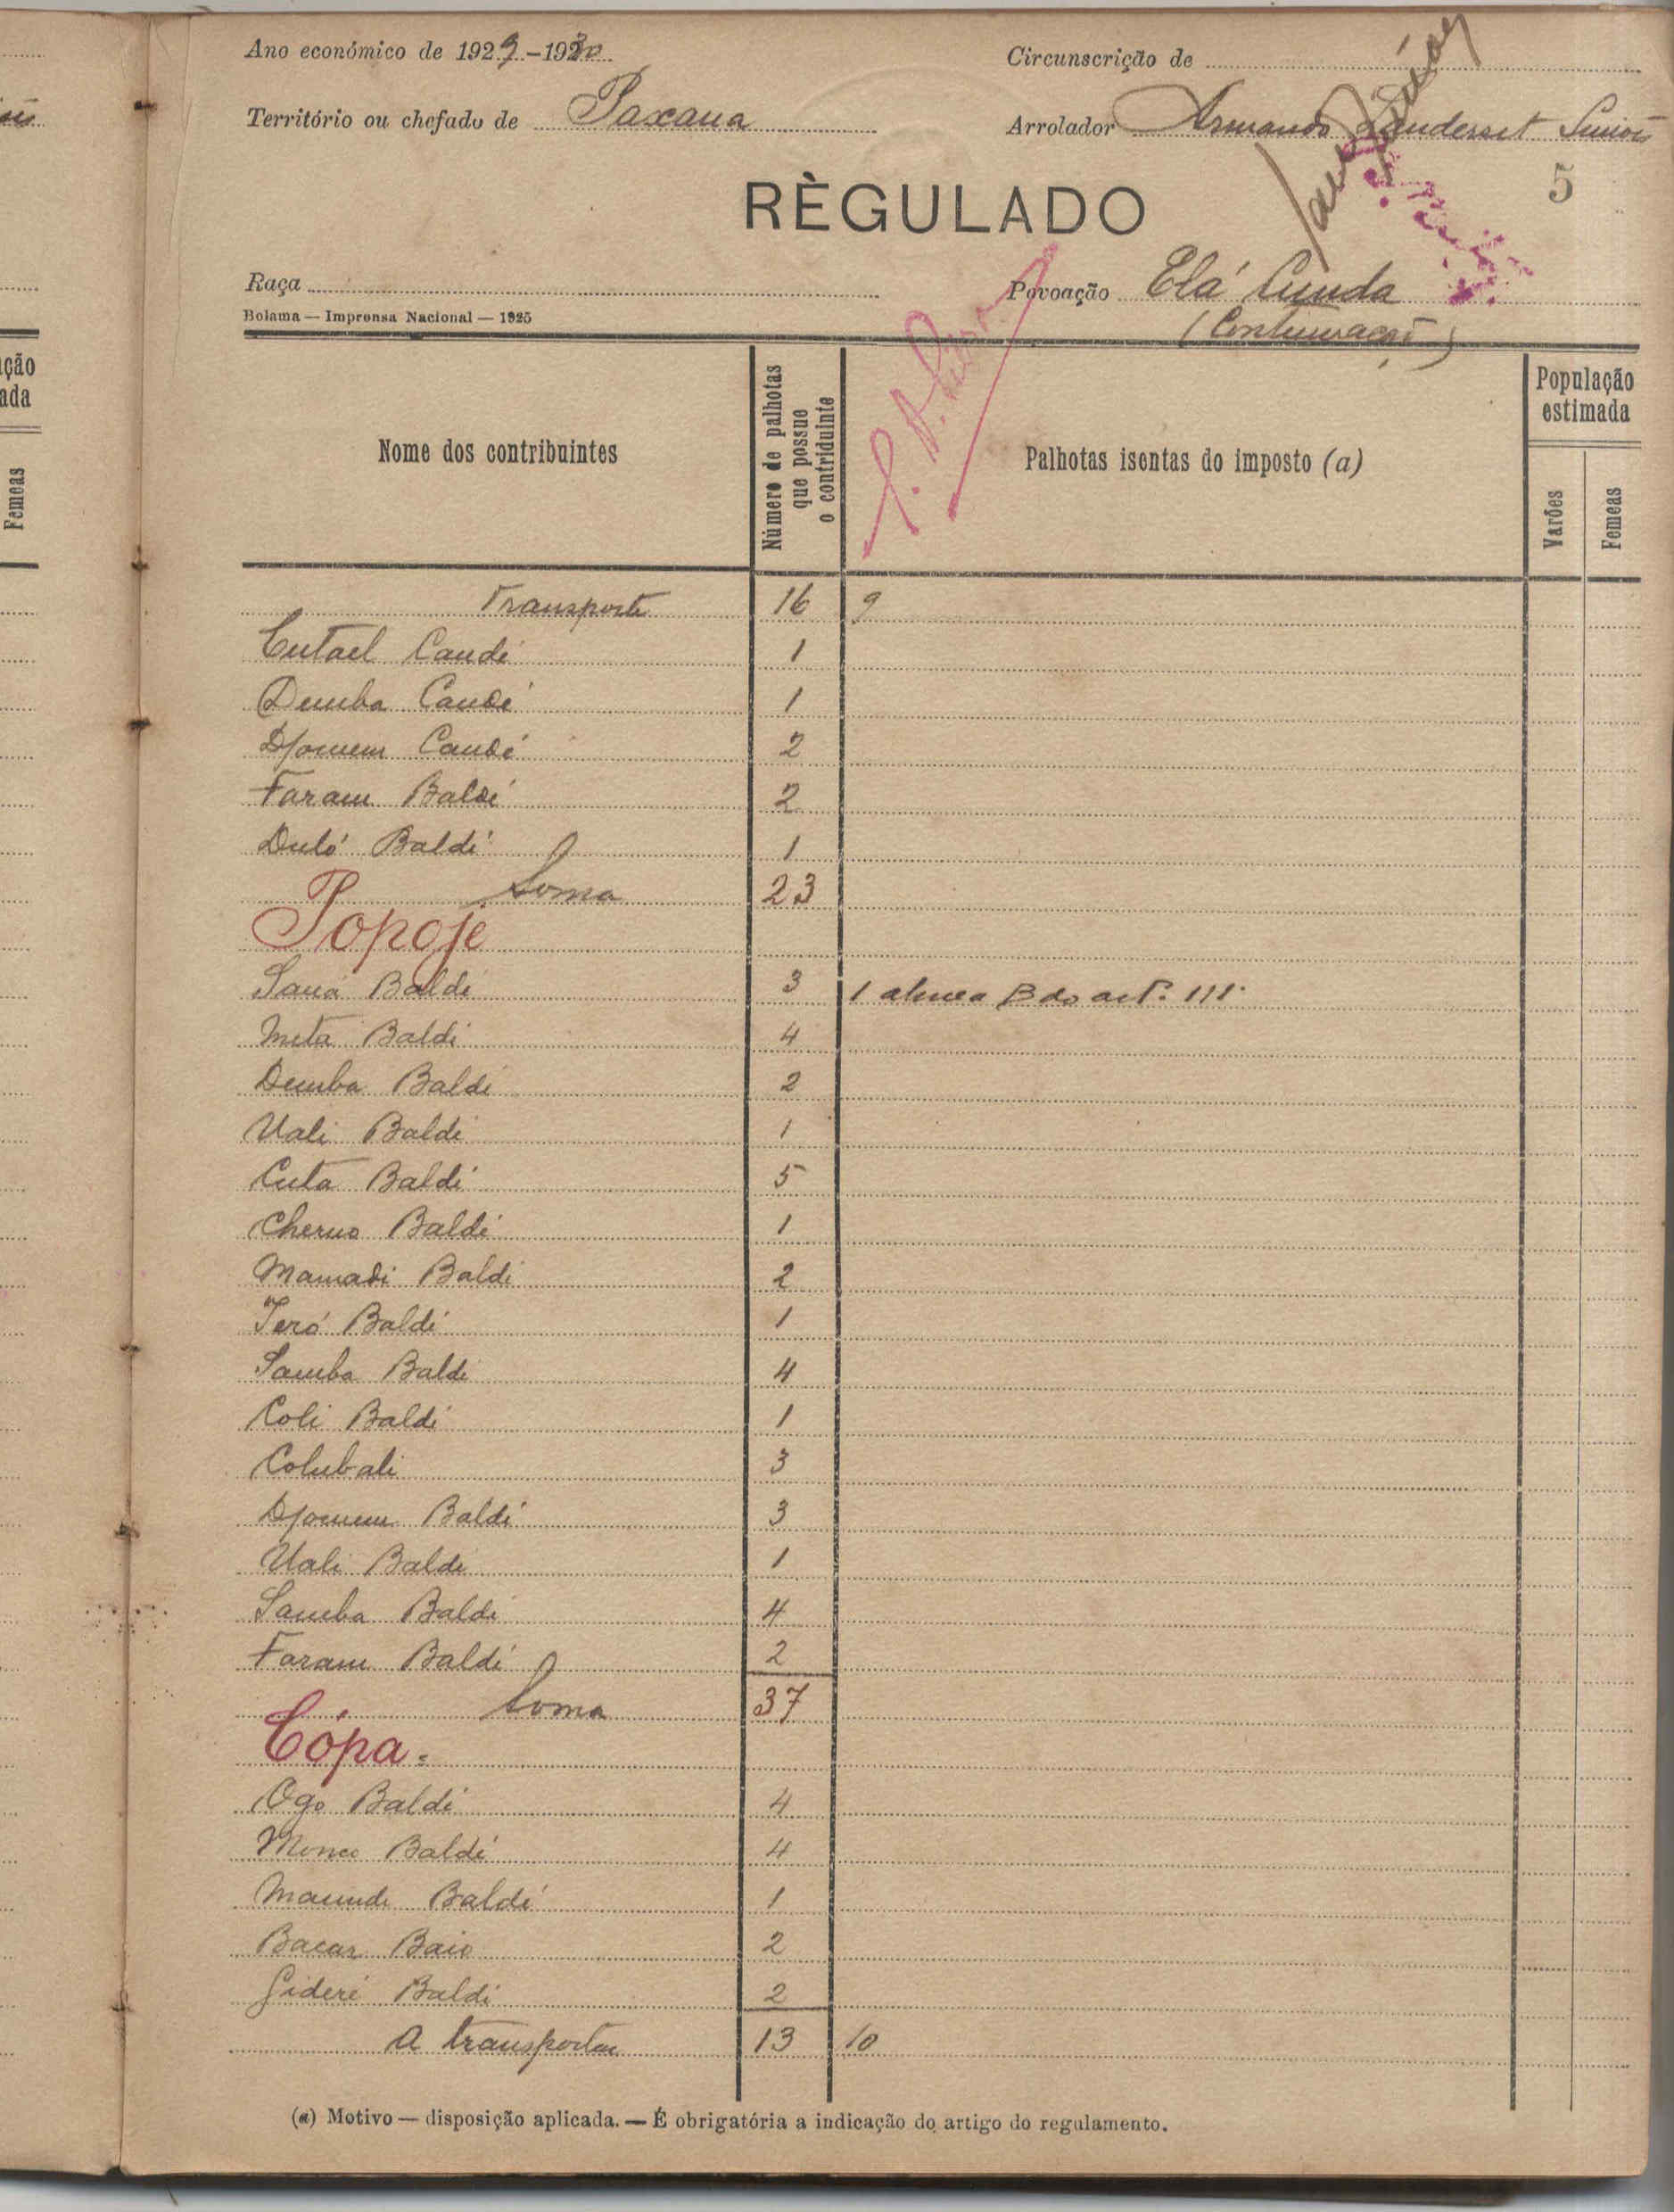 Ano económico de 1929-1930
Circunscrição de
Território ou chefado de Paxana
Arrolador Armando Landerset Junior
5
RÈGULADO
Raça
Povoação Elá Cunda
(Continuação)
Bolama — Imprensa Nacional — 1925
Nome dos contribuintes
Número de palhotas
que possue
o contriduinte
Palhotas isentas do imposto (a)
População
estimada
Varões
Femeas
Transporte 16 9
Cutael Candé 1
Demba Candé 1
Djomem Candé 2
Faram Baldé 2
Duló Baldé 1
Soma 23
Popoje
Saná Baldé 3 1 alinea B do art.º 111º
Meta Baldé 4
Demba Baldé 2
Uali Baldé 1
Cuta Baldé 5
Cherno Baldé 1
Mamadi Baldé 2
Teró Baldé 1
Samba Baldé 4
Coli Baldé 1
Colubali 3
Djomem Baldé 3
Uali Baldé 1
Samba Baldé 4
Faram Baldé 2
Soma 37
Cópa
Ogo Baldé 4
Monco Baldé 4
Maunde Baldé 1
Bacar Baio 2
Gideré Baldé 2
A transportar 13 10
(a) Motivo — disposição aplicada. — É obrigatória a indicação do artigo do regulamento.
ção
ada
Femeas